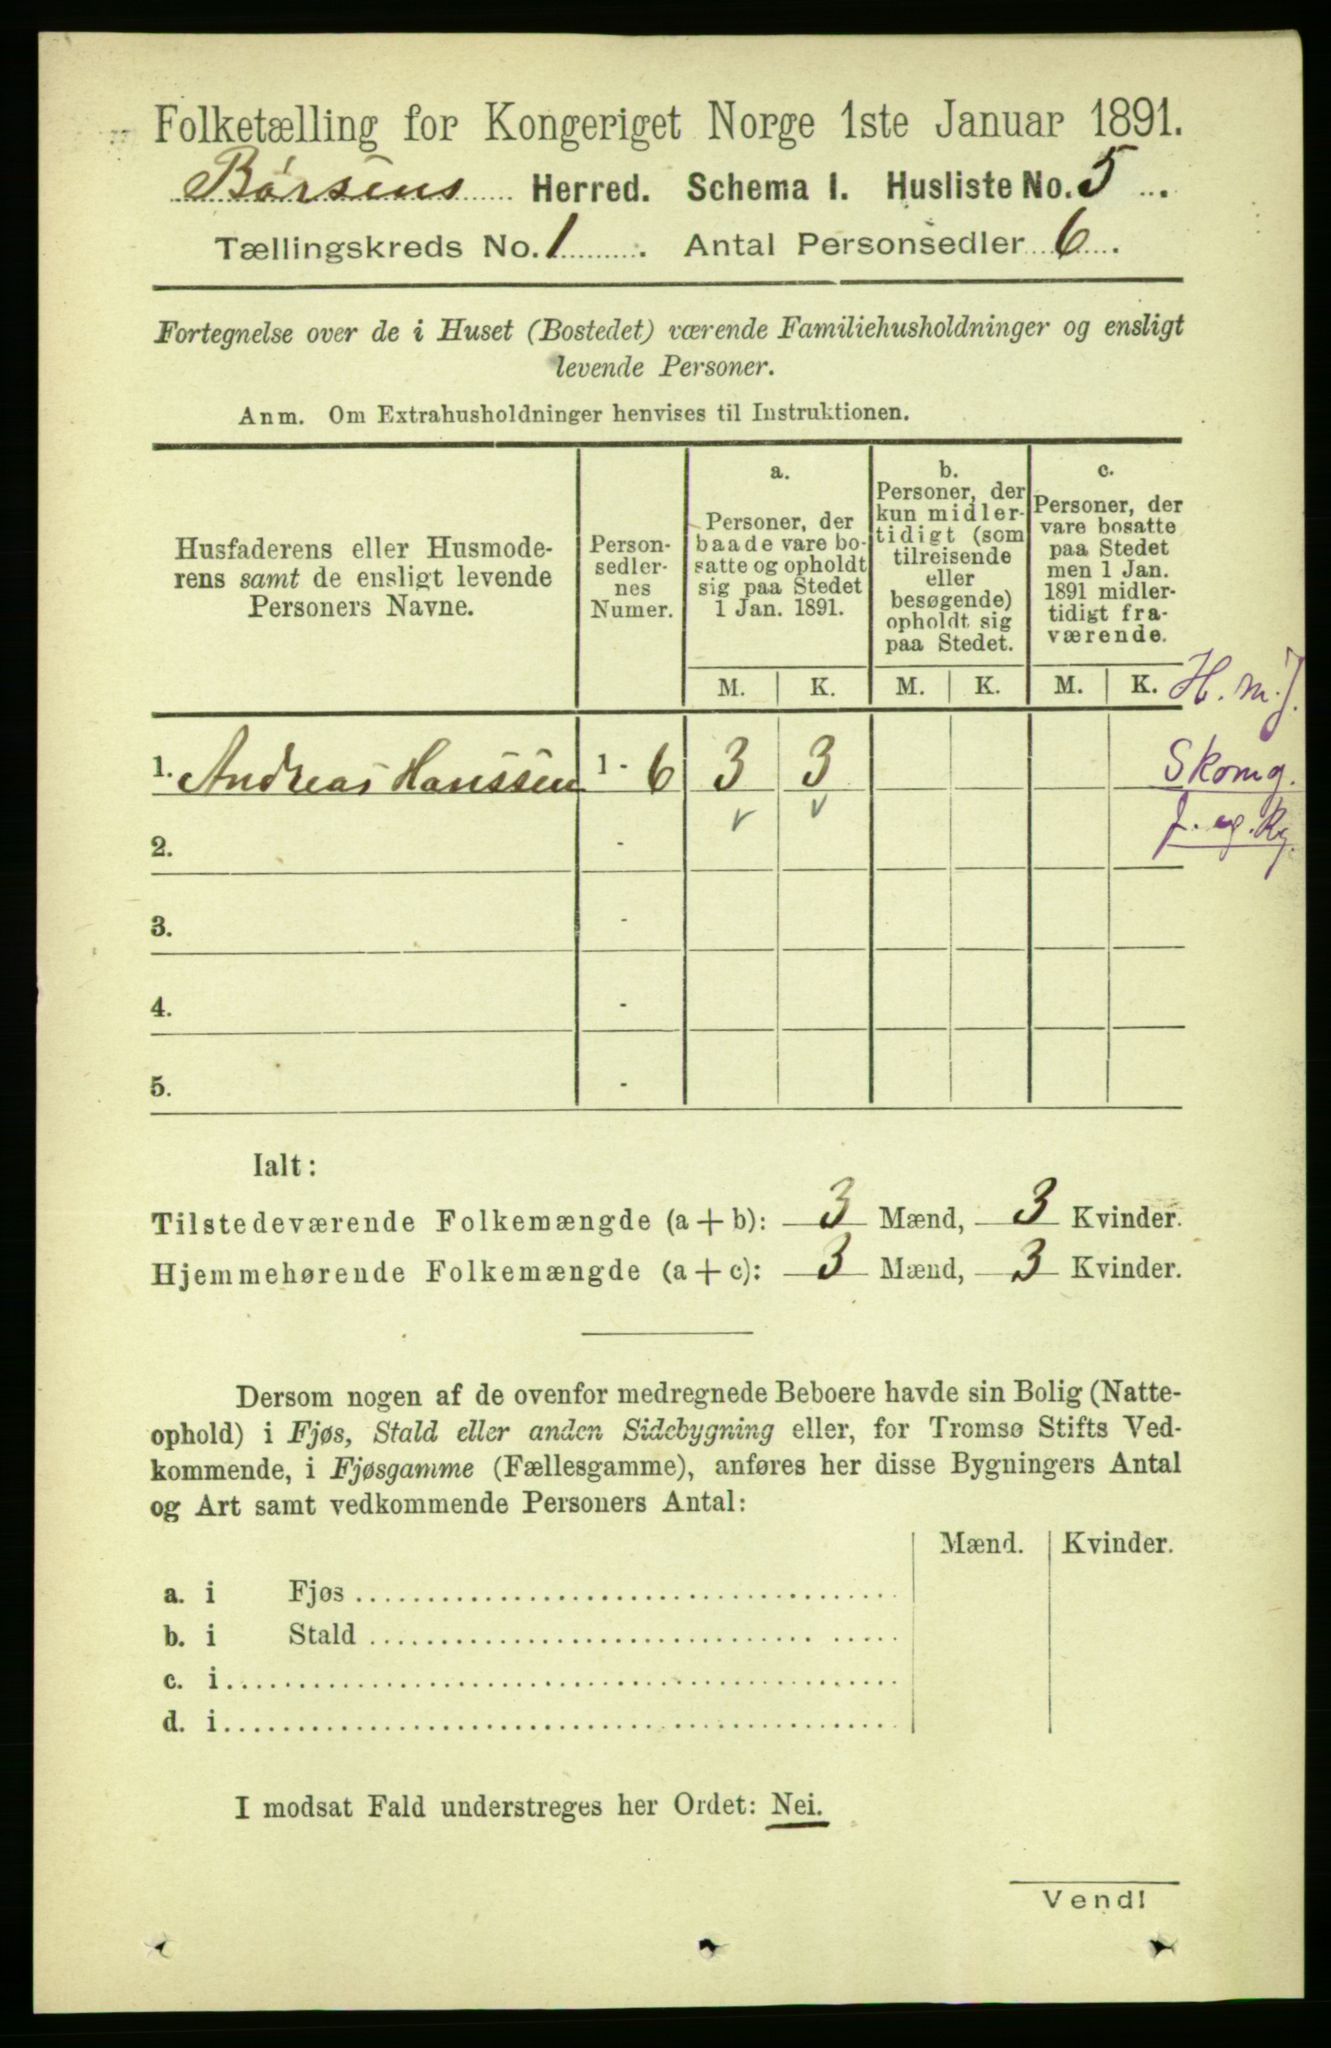 Folketælling for Kongeriget Norge 1ste Januar 1891.
Børsens Herred. Schema I. Husliste No. 5.
Tællingskreds No. 1. Antal Personsedler 6.
Fortegnelse over de i Huset (Bostedet) værende Familiehusholdninger og ensligt
levende Personer.
Anm. Om Extrahusholdninger henvises til Instruktionen.
Husfaderens eller Husmode-
rens samt de ensligt levende
Personers Navne.
Person-
sedler-
nes
Numer.
a.
Personer, der
baade vare bo-
satte og opholdt
sig paa Stedet
1 Jan. 1891.
b.
Personer, der
kun midler-
tidigt (som
tilreisende
eller
besøgende)
opholdt sig
paa Stedet.
c.
Personer, der
vare bosatte
paa Stedet
men 1 Jan.
1891 midler-
tidigt fra-
værende.
M. K. M. K. M. K. H. m. J.
1. Andreas Hanssen 1 - 6 3 3 Skomg.
J. og. Kg.
2. -
3. -
4. -
5. -
Ialt:
Tilstedeværende Folkemængde (a + b): 3 Mænd, 3 Kvinder.
Hjemmehørende Folkemængde (a + c): 3 Mænd, 3 Kvinder.
Dersom nogen af de ovenfor medregnede Beboere havde sin Bolig (Natte-
ophold) i Fjøs, Stald eller anden Sidebygning eller, for Tromsø Stifts Ved-
kommende, i Fjøsgamme (Fællesgamme), anføres her disse Bygningers Antal
og Art samt vedkommende Personers Antal:
Mænd. Kvinder.
a. i Fjøs
b. i Stald
c. i
d. i
I modsat Fald understreges her Ordet: Nei.
Vend!